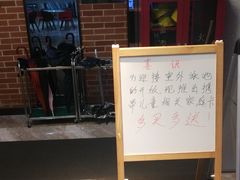 喜讯
为迎接室外泳池
的开放，现推出携
带儿童相关家庭卡
多买多送！